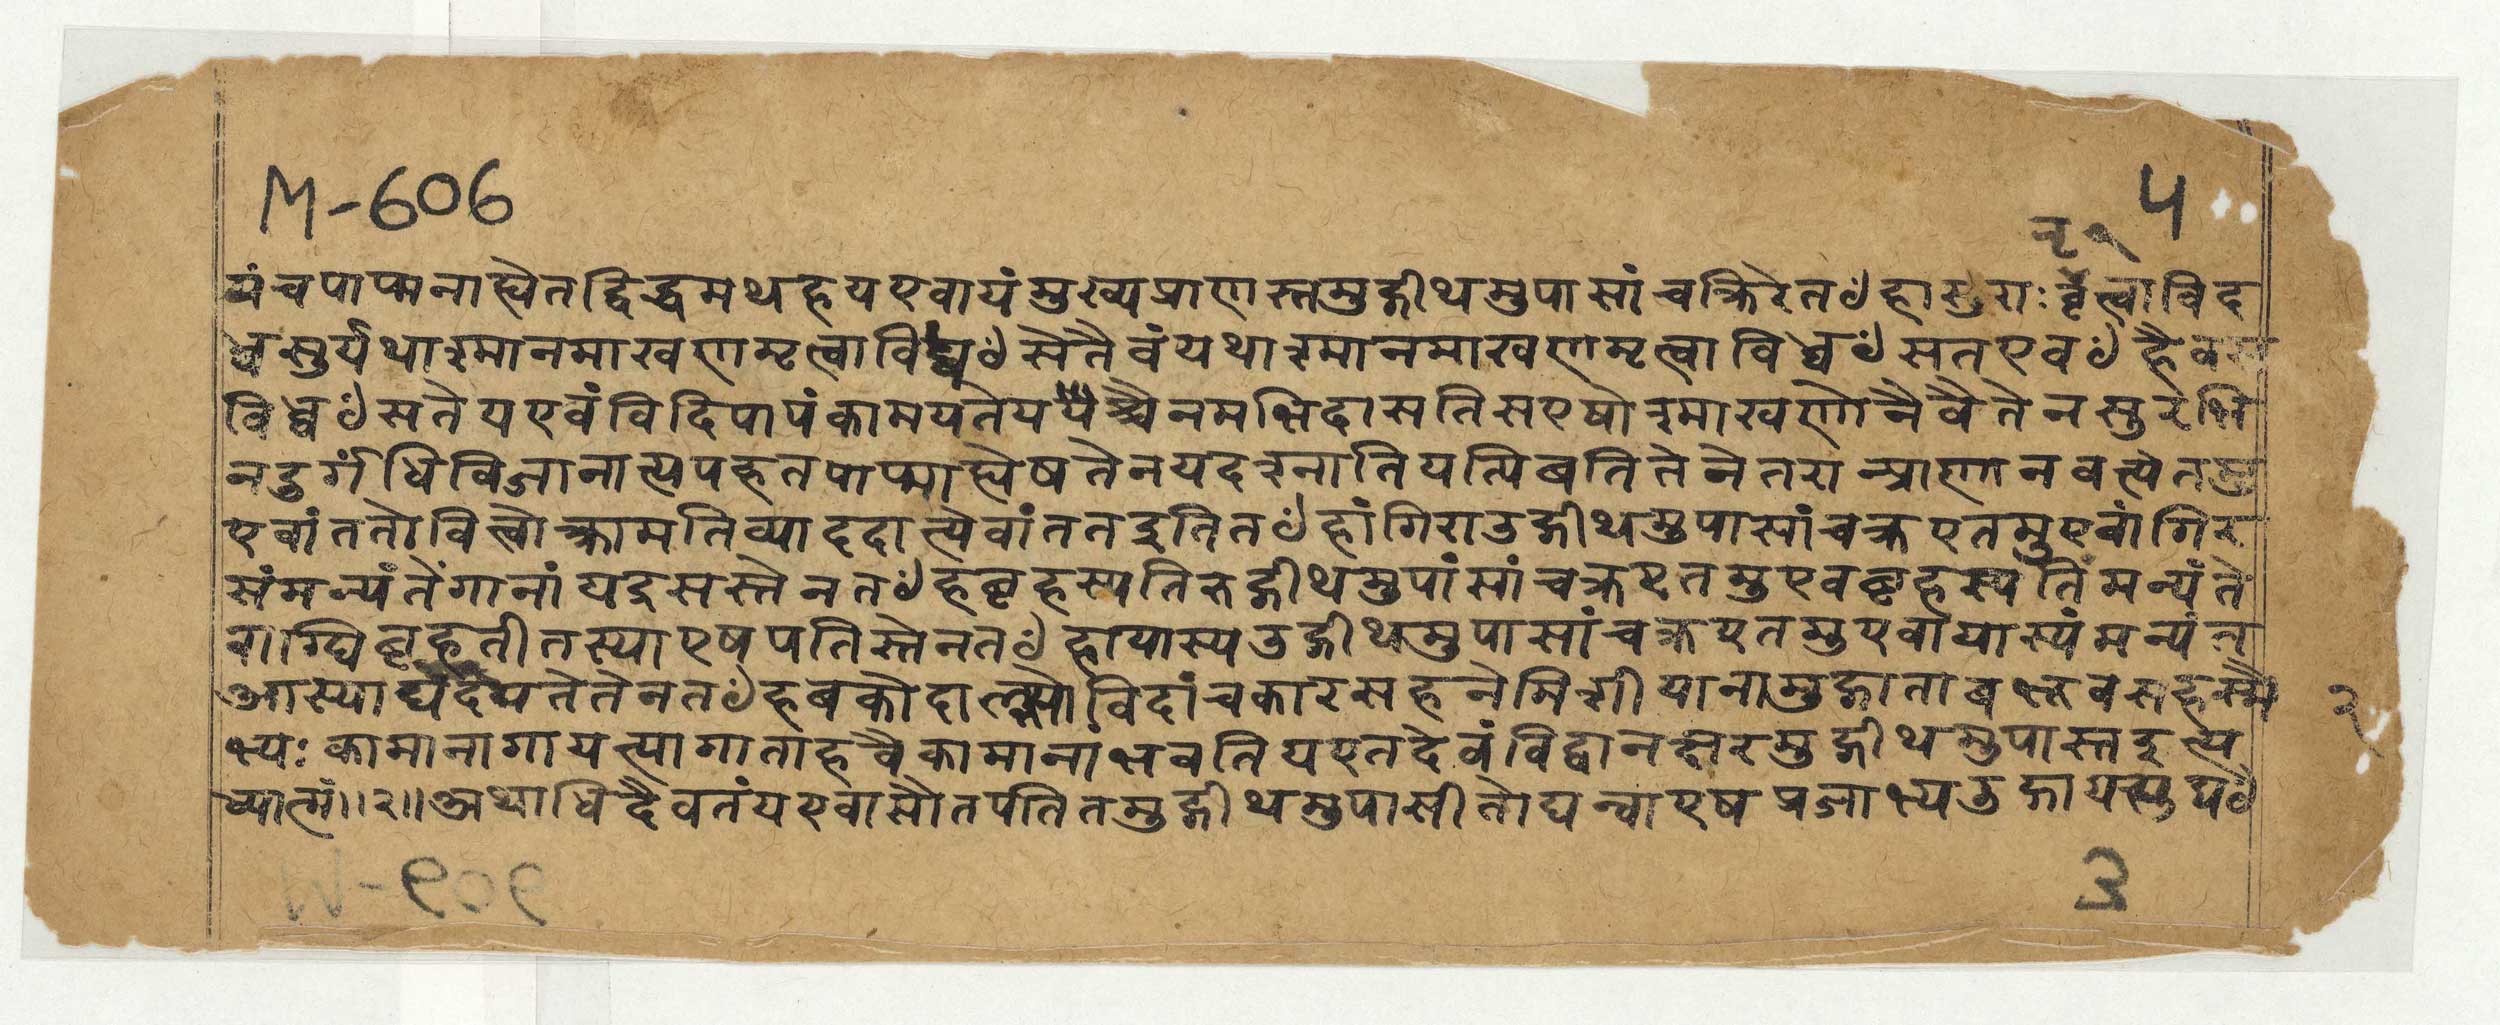 M-606
५
ऋ २
यं च पाप्मना ह्येतद्विद्धमथ ह य एवायं मुख्य प्राणस्तमुद्गीथमुपासांचक्रिरे तꣳ हासुराः ऋत्वा विद
ध्वसुर्यथाश्मानमाखणमृत्वा विध्वꣳसेतैवं यथाश्मानमाखणमृत्वा विध्वꣳसत एवꣳ हैव स
विध्वꣳसते य एवंविदि पापं कामयते यश्चैनमभिदासति स एषोश्माखणो नैवैतेन सुरभि
न दुर्गंधि विजानात्यपहतपाप्मा ह्येष तेन यदश्नाति यत्पिबति तेनेतरान्प्राणानवत्येतमु
एवांततोवित्वोक्रामति व्याददात्येवांतत इति तꣳ हांगिरा उद्गीथमुपासांचक्र एतमु एवांगिर
सं मन्यंतेंगानां यद्रसस्तेन तꣳ ह बृहस्पतिरुद्गीथमुपांसांचक्र एतमु एव बृहस्पतिं मन्यंते
वाग्घि बृहती तस्या एष पतिस्तेन तꣳ हायास्य उद्गीथमुपासांचक्र एतमु एवायास्यं मन्यंत
आस्याद्यदयते तेन तꣳ ह बको दाल्भ्यो विदांचकार स ह नैमिशीयानामुद्गाता बभूव स ह स्मै
भ्यः कामानागायत्यागाता ह वै कामानां भवति य एतदेवं विद्वानक्षरमुद्गीथमुपास्त इत्य
ध्यात्मं ॥२॥ अथाधिदैवतं य एवासौ तपति तमुद्गीथमुपासीतोद्यन्वा एष प्रजाभ्य उद्गायत्युद्यꣳ
२
3